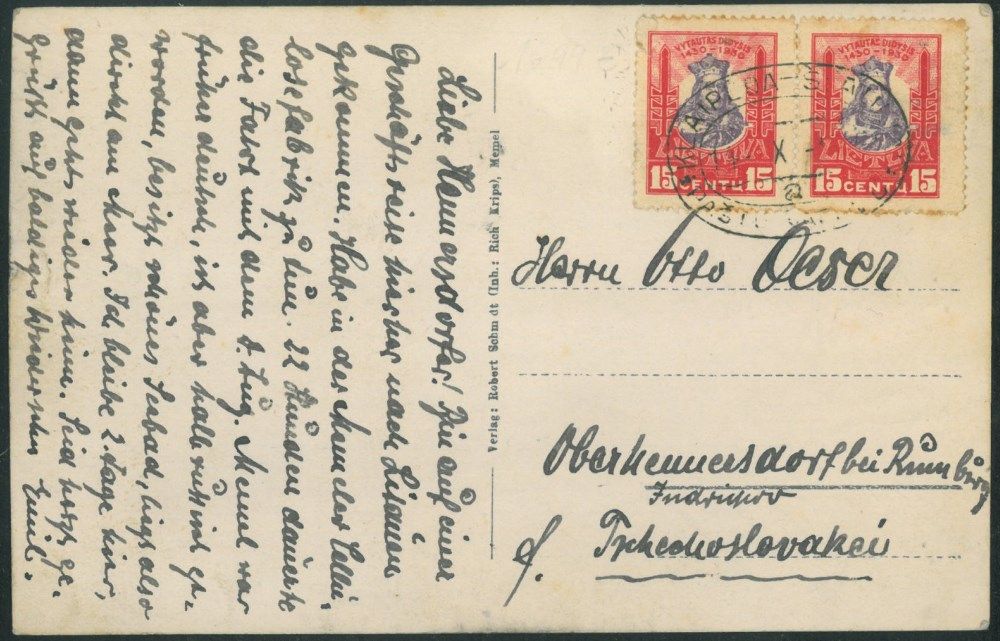 Liebe Hennersdorfer! Bin auf einer
Geschäftsreise hierher nach Litauen
gekommen. Habe in der Memeler Cellu-
losefabrik zu tun. 22 Stunden dauerte
die Fahrt mit dem D. Zug. Memel war
früher deutsch, ist aber halb russisch ge-
worden, besitzt schönes Seebad, liegt also
direkt am Meer. Ich bleibe 2 Tage hier,
dann gehts wieder heim. Seid herzl. ge-
grüßt auf baldiges Wiedersehn Emil.
Verlag: Robert Schmidt (Inh.: Rich Krips), Memel
VYTAUTAS DIDYSIS
1430-1930
LIETUVA
15 CENTŲ 15
VYTAUTAS DIDYSIS
1430-1930
LIETUVA
15 CENTŲ 15
KLAIPEDA
Herrn Otto Oeser
Oberhennersdorf bei Rumburg
Tschechoslovakei